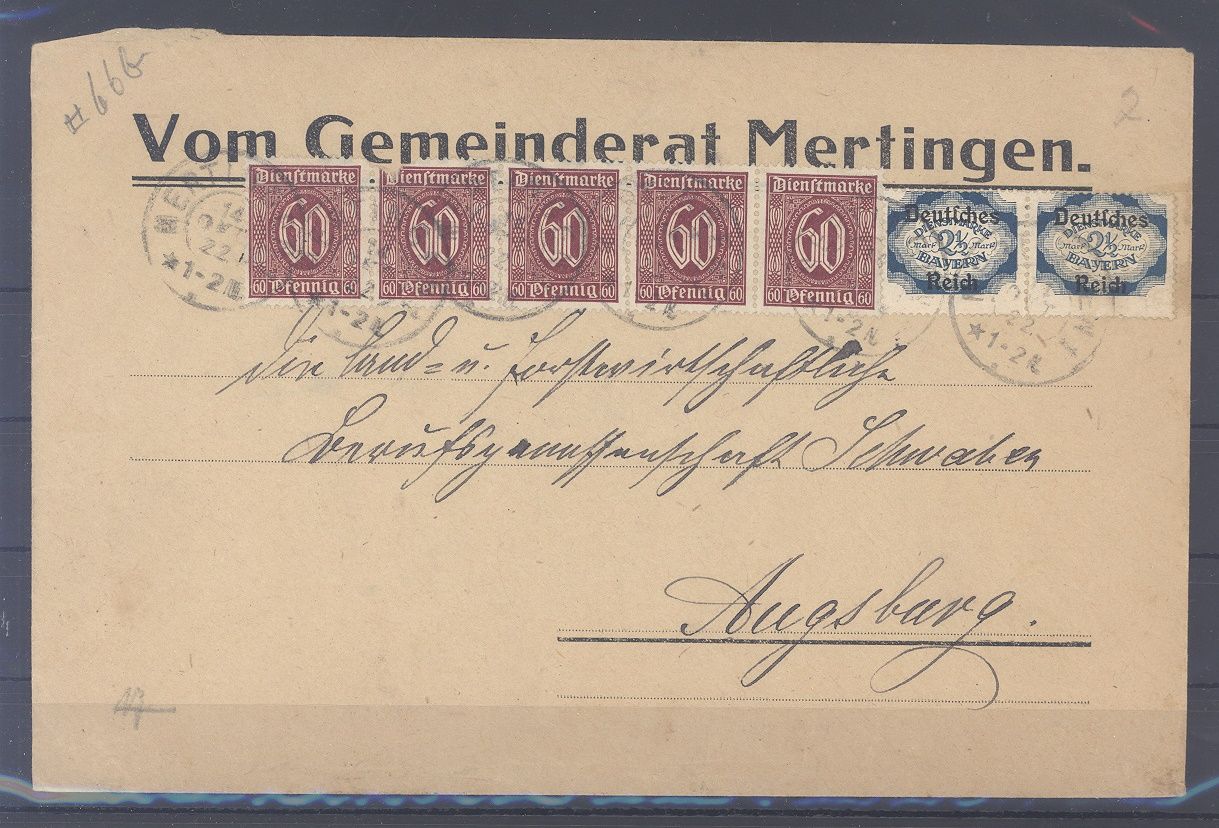 #66b
2
Vom Gemeinderat Mertingen.
Dienstmarke Dienstmarke Dienstmarke Dienstmarke Dienstmarke
60 60 60 60 60
60 Pfennig 60 60 Pfennig 60 60 Pfennig 60 60 Pfennig 60 60 Pfennig 60
Deutsches Deutsches
DIENSTMARKE DIENSTMARKE
Mark 2½ Mark Mark 2½ Mark
BAYERN BAYERN
Reich Reich
MERT
14
22
*1-2N.
*1-2N.
1-2N.
22
*1-2N.
Die land- u. forstwirtschaftliche
Berufsgenossenschaft Schwaben
Augsburg.